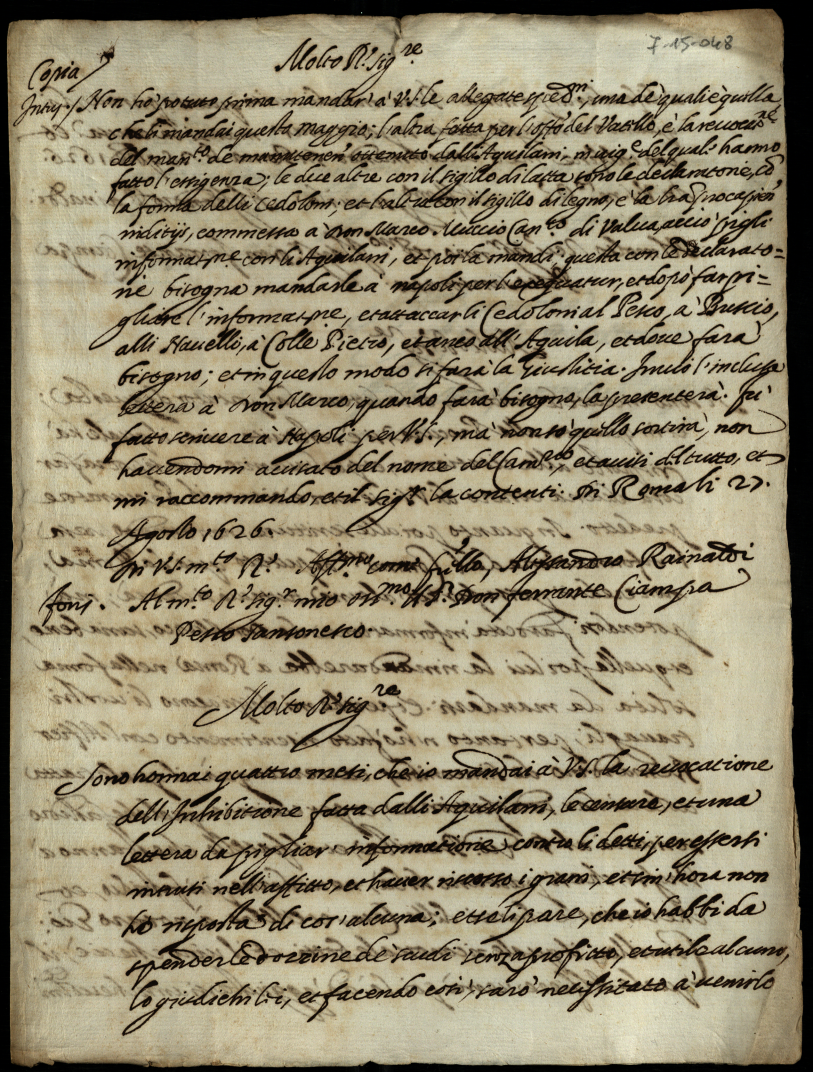 7-15-048
Copia
Molto R.do sig.re
Intus / Non ho potuto prima mandar' à V.S. le allegate sped.ni, una de quali è quella
che li mandai questo maggio; l'altra fatta per l'off.o del Vasillo, è la revoca.ne
del man.to de manutenen' ottenuto dalli Aquilani, in vig.e del qual' hanno
fatto l'essigenza; le due altre con il sigillo di latta sono le declaratone, co'
la forma delli cedoloni; et l'altra con il sigillo di legno, è la
inditijs, commessa à Don Marco Muccio Can.co di Valva, acciò pigli
informat.ne con li Aquilani, et poi la mandi. questa con le declarato=
ne bisogna mandarle à napoli per l'exequatur, et dopò far pi=
gliare l'informat.ne, et attaccar li Cedoloni al Pesco, à Bussio,
alli Navelli, à Colle Pietro, et anco all'Aquila, et dove farà
bisogno; et in questo modo si farà la Giustitia. Invio l'inclusa
lettera à Don Marco, quando farà bisogno, la presenterà. fù
fatto scrivere à Napoli per V.S., mà non sò quello sortirà, non
havendomi avisato del nome del et avisi del tutto, et
mi raccommando, et il sig.r la contenti. Di Roma li 27.
Agosto 1626.
Di V.S. m.to R.da Aff.mo come f.llo, Alessandro Rainaldi
foris. Al m.to R.do sig.r mio oss.mo il s.r Don ferrante Ciampa
Pesco Sansonesco
Molto R.do sig.re
Sono hormai quattro mesi, che io mandai à V.S. la revocatione
dell'Inhibitione fatta dalli Aquilani, le censure, et una
lettera da pigliar' informatione contro li detti, per essersi
intrusi nell'affitto, et haver riscosso i grani, et sin' hora non
hò risposta di cos' alcuna; et se li pare, che io habbi da
spender le dozzine de scudi senza profitto, et utile alcuno,
lo giudichi lei, et facendo così, sarò necessitato à venirlo